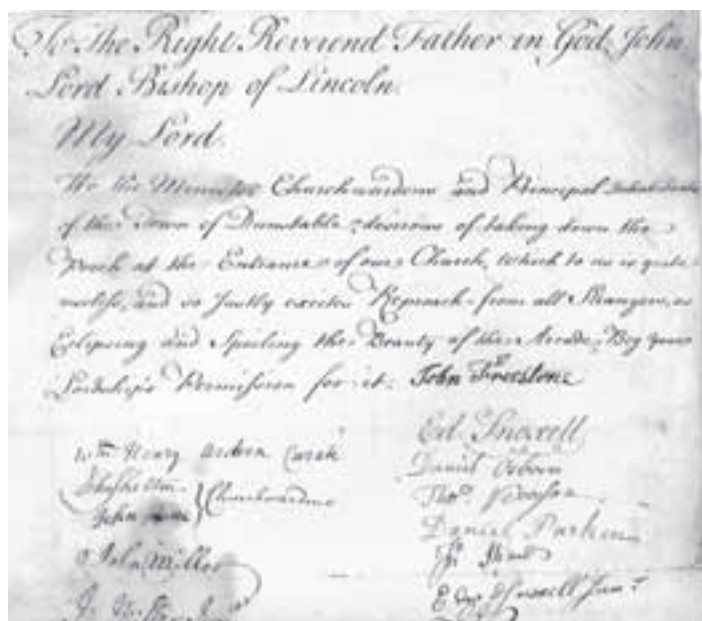 To The Right Reverend Father in God, John
Lord Bishop of Lincoln.
My Lord.
We the Minister Churchwardens and Principal Inhabitants
of the Town of Dunstable desirous of taking down the
Porch at the Entrance of our Church, which to us is quite
useless, and so justly excites Reproach from all Strangers, as
Eclipsing and Spoiling the Beauty of the Arcade, Beg your
Lordship's Permission for it. John Freestone
Wm Henry Curate
Ed. Snoxell
Churchwardens
John
Daniel Osborn
Tho. Pearson
Daniel Parkin
Miller
Edw. Snoxell Junr